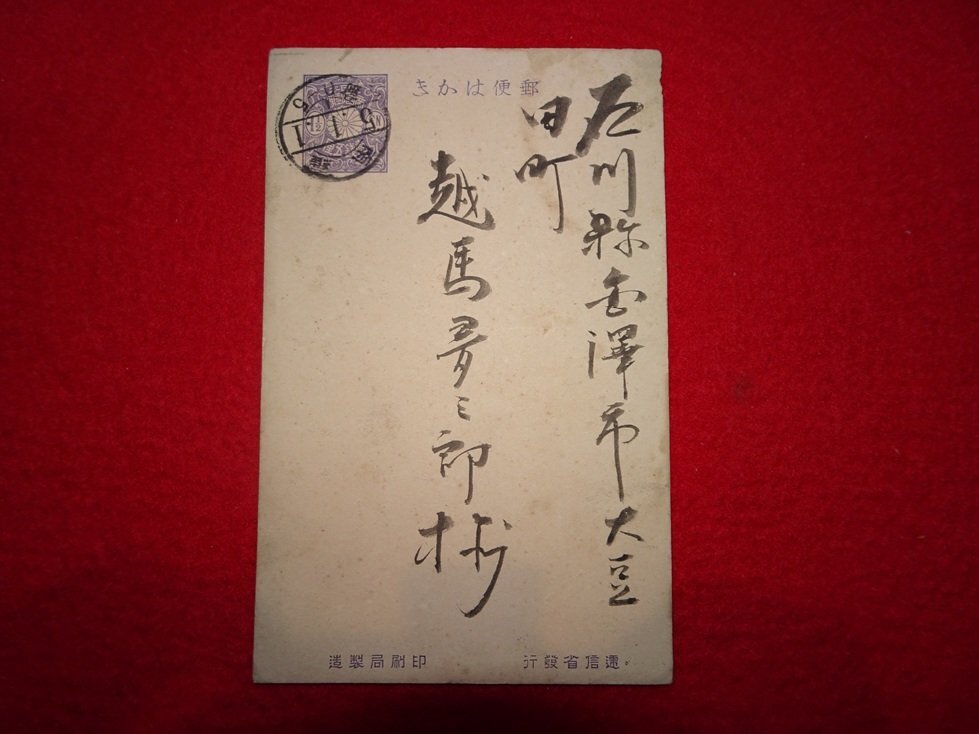 郵便はかき
石川縣金澤市大豆
田町
越馬喜三郎様
遞信省發行
印刷局製造